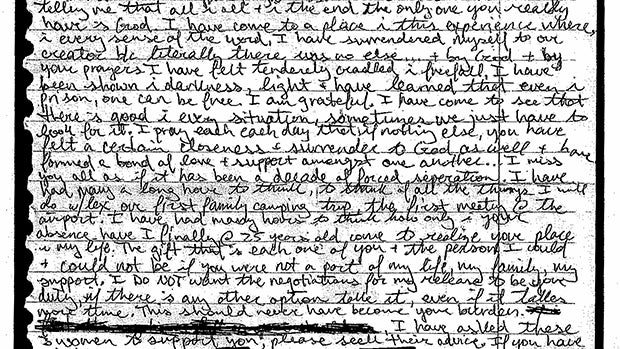 telling me that all in all + in the end the only one you really
have is God. I have come to a place in this experience where,
in every sense of the word, I have surrendered myself to our
creator b/c literally there was no else... + by God + by
your prayers I have felt tenderly cradled in freefall. I have
been shown in darkness, light + have learned that even in
prison, one can be free. I am grateful. I have come to see that
there is good in every situation, sometimes we just have to
look for it. I pray each each day that if nothing else, you have
felt a certain closeness + surrender to God as well + have
formed a bond of love + support amongst one another... I miss
you all as if it has been a decade of forced seperation. I have
had many a long hour to think, to think of all the things I will
do w/Lex, our first family camping trip, the first meeting @ the
airport. I have had many hours to think how only in your
absence have I finally @ 25 years old come to realize your place
in my life. The gift that is each one of you + the person I could
+ could not be if you were not a part of my life, my family, my
support. I DO NOT want the negotiations for my release to be your
duty, if there is any other option take it, even if it takes
more time. This should never have become your burden.
I have asked these
women to support you; please seek their advice. If you have